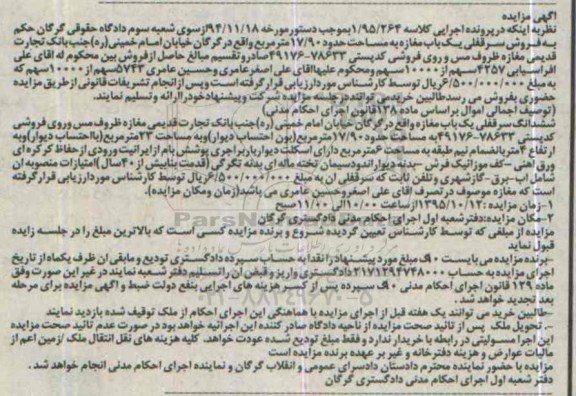 آگهی مزایده
نظر به اینکه در پرونده اجرایی کلاسه ۱/۹۵/۲۶۴ بموجب دستور مورخه ۹۴/۱۱/۱۸ از سوی شعبه سوم دادگاه حقوقی گرگان حکم
به فروش سرقفلی یک باب مغازه به مساحت حدود ۱۷/۹۰ مترمربع واقع در گرگان خیابان امام خمینی (ره) جنب بانک تجارت
قدیمی مغازه ظروف مس و روی فروشی کدپستی ۷۸۶۳۳-۴۹۱۷۶ صادر و تقسیم مبالغ حاصل از فروش بین محکوم له اقای علی
افراسیابی ۴۲۵۷ سهم از ۱۰۰۰۰ سهم ومحکوم علیها اقای علی اصغر عامری وحسین عامری ۵۷۴۳ سهم از ۱۰۰۰۰ سهم که
به مبلغ ۶/۵۰۰/۰۰۰/۰۰۰ ریال توسط کارشناس مورد ارزیابی قرار گرفته است وپس از انجام تشریفات قانونی از طریق مزایده
حضوری بفروش می رسد طالبین خرید می توانند در جلسه مزایده شرکت و پیشنهاد خود را ارائه و تسلیم نمایند.
(توصیف اجمالی اموال بر اساس ماده ۱۳۸ قانون اجرای احکام مدنی)
ششدانگ سرقفلی یک باب مغازه واقع در گرگان خیابان امام خمینی (ره) جنب بانک تجارت قدیمی مغازه ظروف مس وروی فروشی
کدپستی ۷۸۶۳۳-۴۹۱۷۶ به مساحت حدود ۱۷/۹۰ مترمربع (بون احتساب دیوار) وبه مساحت ۲۳ مترمربع (با احتساب دیوار) وبه
ارتفاع ۴ متر بانضمام نیم طبقه به مساحت ۶ مترمربع دارای اسکلت دیوار باربر اجری پوشش بام از ایرانیت ورودی از حفاظ کرکره ای
ورق آهنی -کف موزائیک فرش -بدنه دیوار اندود سیمان تخته ماله ای بدنه تگرگی (قدمت بنا بیش از ۴۰ سال) امتیازات منصوبه ان
شامل اب-برق-گازشهری و تلفن ثابت که سرقفلی ان به مبلغ ۶/۵۰۰/۰۰۰/۰۰۰ ریال توسط کارشناس مورد ارزیابی قرار گرفته
است که مغازه موصوف در تصرف اقای علی اصغر وحسین عامری می باشد (زمان ومکان مزایده).
۱-زمان مزایده: ۱۳۹۵/۱۰/۱۲ از ساعت ۱۰/۰۰ الی ۱۱/۰۰ صبح
۲-مکان مزایده: دفتر شعبه اول اجرای احکام مدنی دادگستری گرگان
مزایده از مبلغی که توسط کارشناس تعیین گردیده شروع و برنده مزایده کسی است که بالاترین مبلغ را در جلسه مزایده
قبول نماید
-برنده مزایده می بایست ۱۰٪ مبلغ مورد پیشنهاد را نقدا به حساب سپرده دادگستری تودیع و مابقی ان ظرف یکماه از تاریخ
اجرای مزایده به حساب ۲۱۷۱۲۹۴۷۴۸۰۰۰ دادگستری واریز و قبض ان را تسلیم دفتر شعبه نمایند در غیر این صورت وفق
ماده ۱۲۹ قانون اجرای احکام مدنی ۱۰٪ سپرده پس از کسر هزینه های اجرایی بنفع دولت ضبط و اگهی مزایده برای مرحله
بعد تجدید خواهد شد.
-طالبین خرید می توانند یک هفته قبل از اجرای مزایده با هماهنگی این اجرای احکام از ملک توقیف شده بازدید نمایند
-تحویل ملک پس از تائید صحت مزایده از ناحیه دادگاه صادر کننده این اجرائیه خواهد بود در صورت عدم تائید صحت مزایده
این اجرا مسولیتی در رابطه با خریدار ندارد و فقط مبلغ تودیع شده عودت خواهد. کلیه هزینه های نقل انتقال ملک /زمین اعم از
مالیات عوارض و هزینه دفترخانه و غیر بر عهده برنده مزایده است
مزایده با حضور نماینده محترم دادستان دادسرای عمومی و انقلاب گرگان و نماینده اجرای احکام مدنی انجام خواهد شد.
دفتر شعبه اول اجرای احکام مدنی دادگستری گرگان